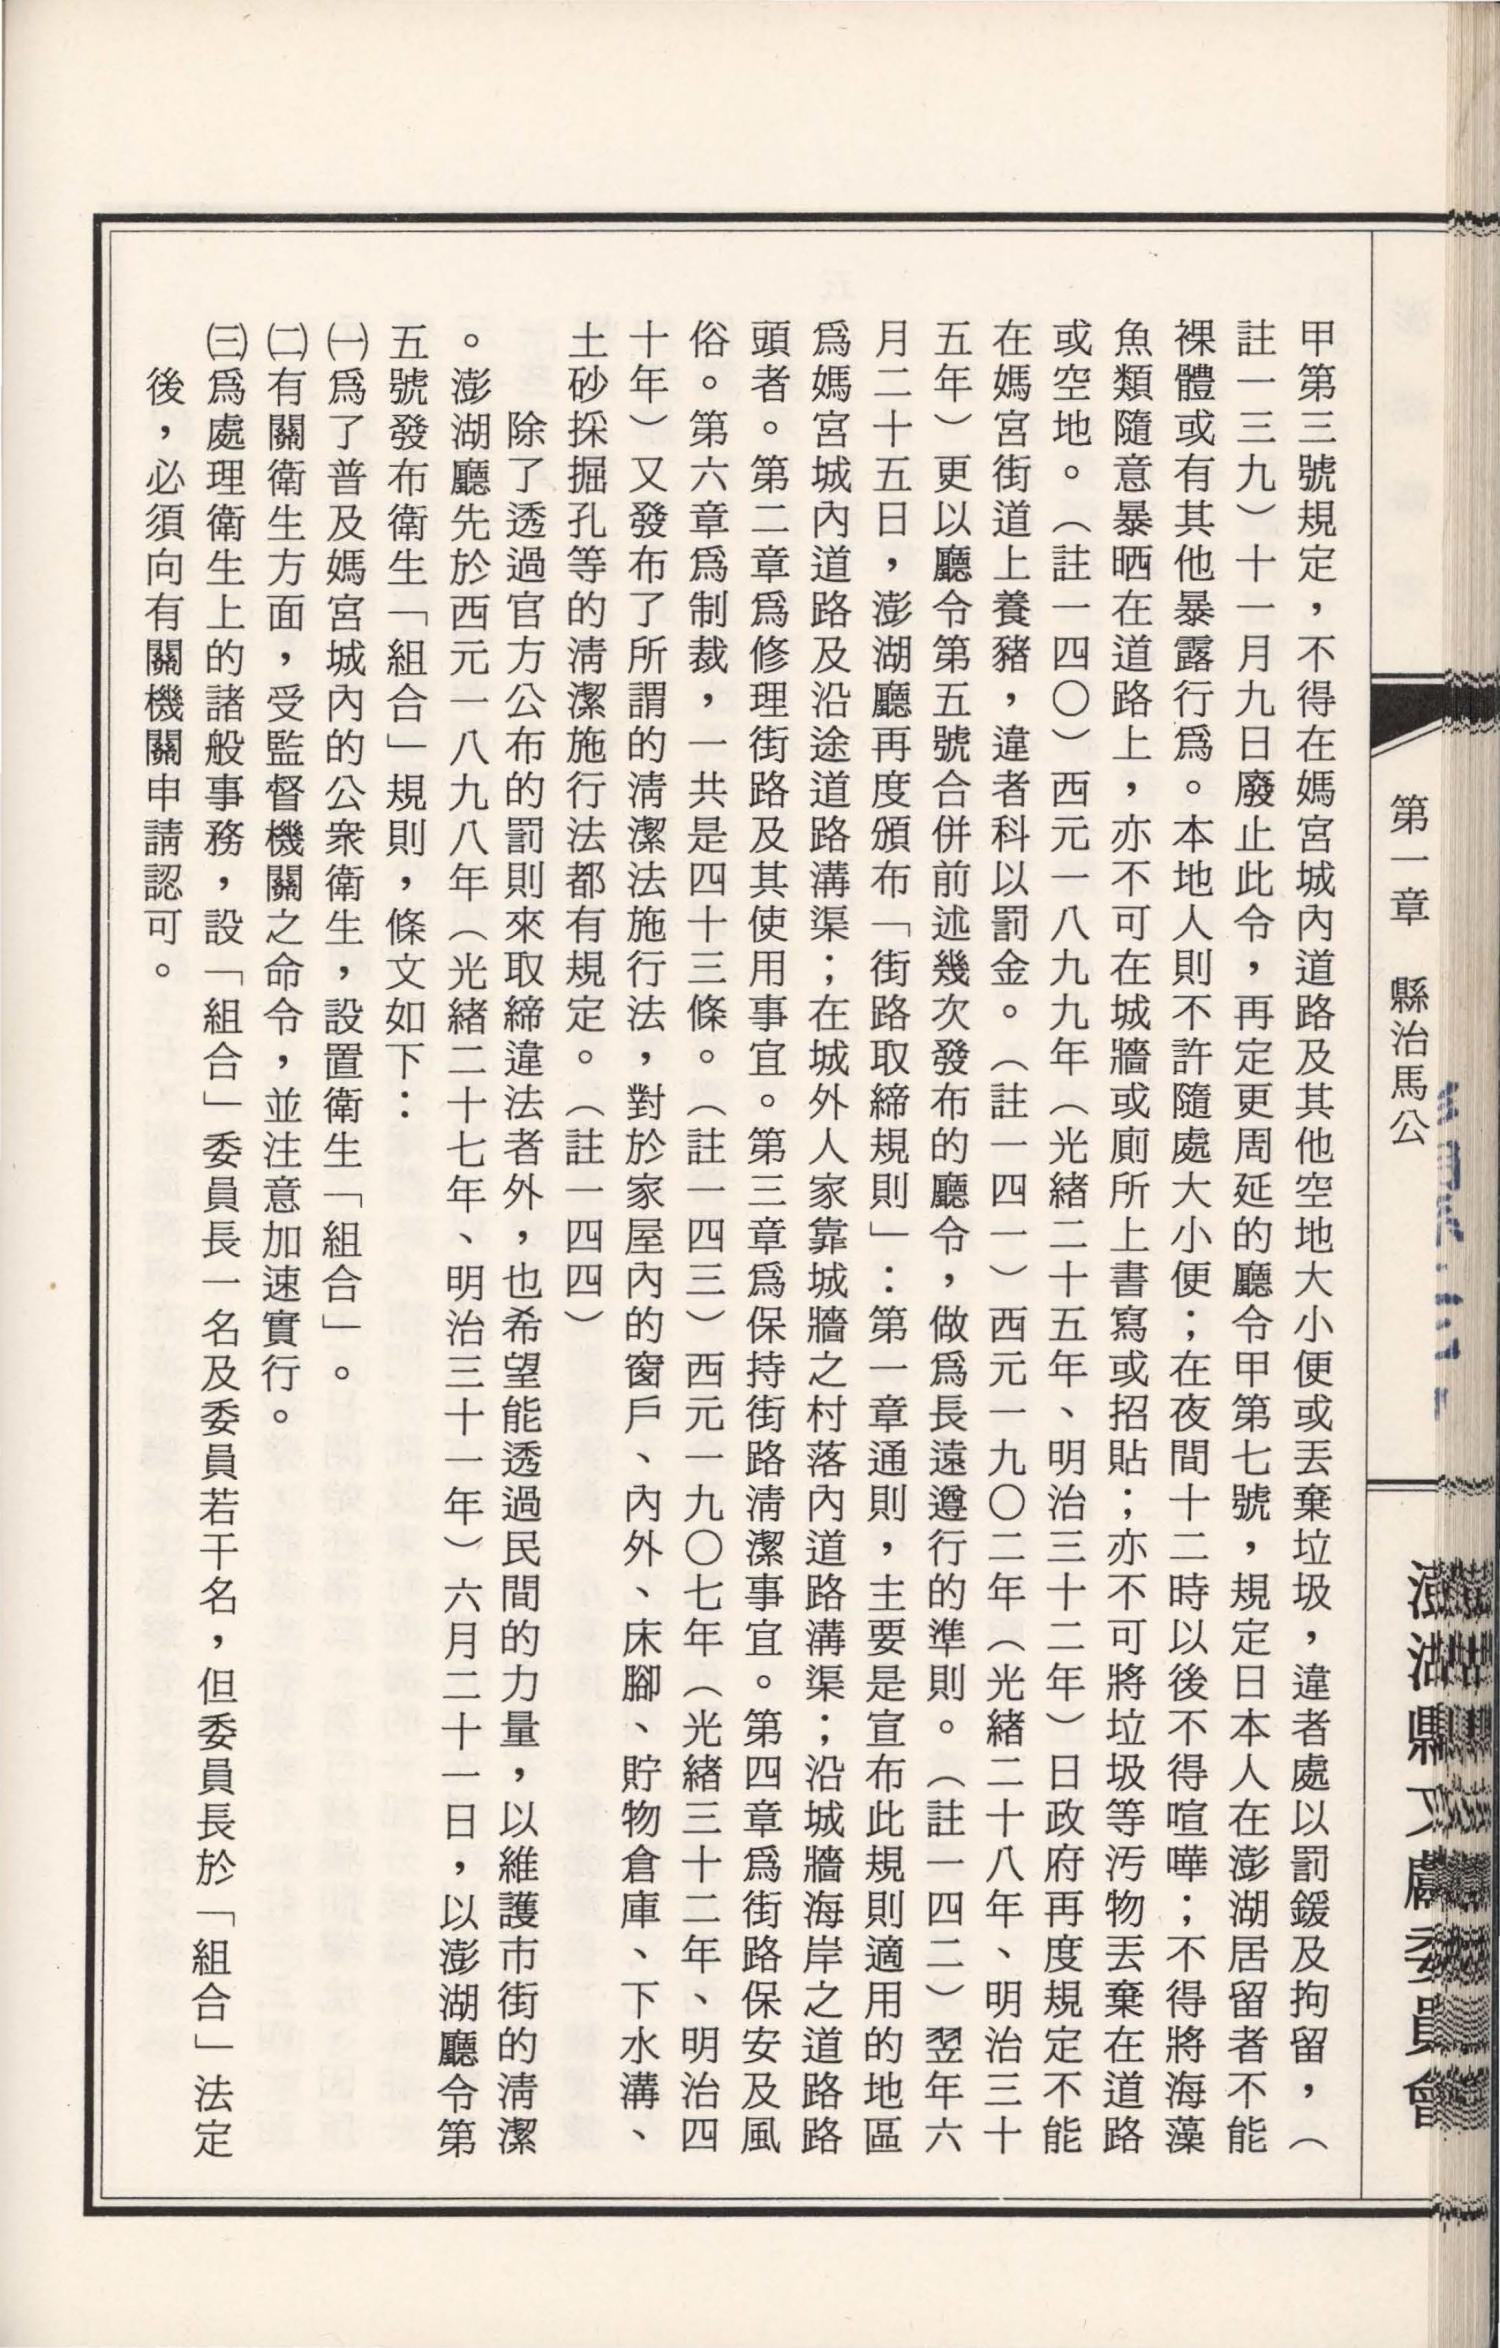 第一章　縣治馬公
澎湖縣文獻委員會
甲第三號規定，不得在媽宮城內道路及其他空地大小便或丟棄垃圾，違者處以罰鍰及拘留，（
註一三九）十一月九日廢止此令，再定更周延的廳令甲第七號，規定日本人在澎湖居留者不能
裸體或有其他暴露行爲。本地人則不許隨處大小便；在夜間十二時以後不得喧嘩；不得將海藻
魚類隨意暴晒在道路上，亦不可在城牆或廁所上書寫或招貼；亦不可將垃圾等汚物丟棄在道路
或空地。（註一四〇）西元一八九九年（光緒二十五年、明治三十二年）日政府再度規定不能
在媽宮街道上養豬，違者科以罰金。（註一四一）西元一九〇二年（光緒二十八年、明治三十
五年）更以廳令第五號合併前述幾次發布的廳令，做爲長遠遵行的準則。（註一四二）翌年六
月二十五日，澎湖廳再度頒布「街路取締規則」：第一章通則，主要是宣布此規則適用的地區
爲媽宮城內道路及沿途道路溝渠；在城外人家靠城牆之村落內道路溝渠；沿城牆海岸之道路路
頭者。第二章爲修理街路及其使用事宜。第三章爲保持街路淸潔事宜。第四章爲街路保安及風
俗。第六章爲制裁，一共是四十三條。（註一四三）西元一九〇七年（光緒三十二年、明治四
十年）又發布了所謂的淸潔法施行法，對於家屋內的窗戶、內外、床腳、貯物倉庫、下水溝、
土砂採掘孔等的淸潔施行法都有規定。（註一四四）
除了透過官方公布的罰則來取締違法者外，也希望能透過民間的力量，以維護市街的淸潔
。澎湖廳先於西元一八九八年（光緒二十七年、明治三十一年）六月二十一日，以澎湖廳令第
五號發布衛生「組合」規則，條文如下：
㈠爲了普及媽宮城內的公衆衛生，設置衛生「組合」。
㈡有關衛生方面，受監督機關之命令，並注意加速實行。
㈢爲處理衛生上的諸般事務，設「組合」委員長一名及委員若干名，但委員長於「組合」法定
後，必須向有關機關申請認可。